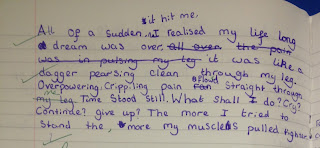 it hit me.
All of a sudden, I realised my life long
dream was over. all over the pain
was in pulsing my leg it was like a
dagger pearsing clean through my leg.
Overpowering. Crippiling pain ran flowd straight through
my leg me! Time Stood Still. What Shall I do? Cry?
Continue? give up? The more I tried to
Stand the, more my muscles pulled tighter.